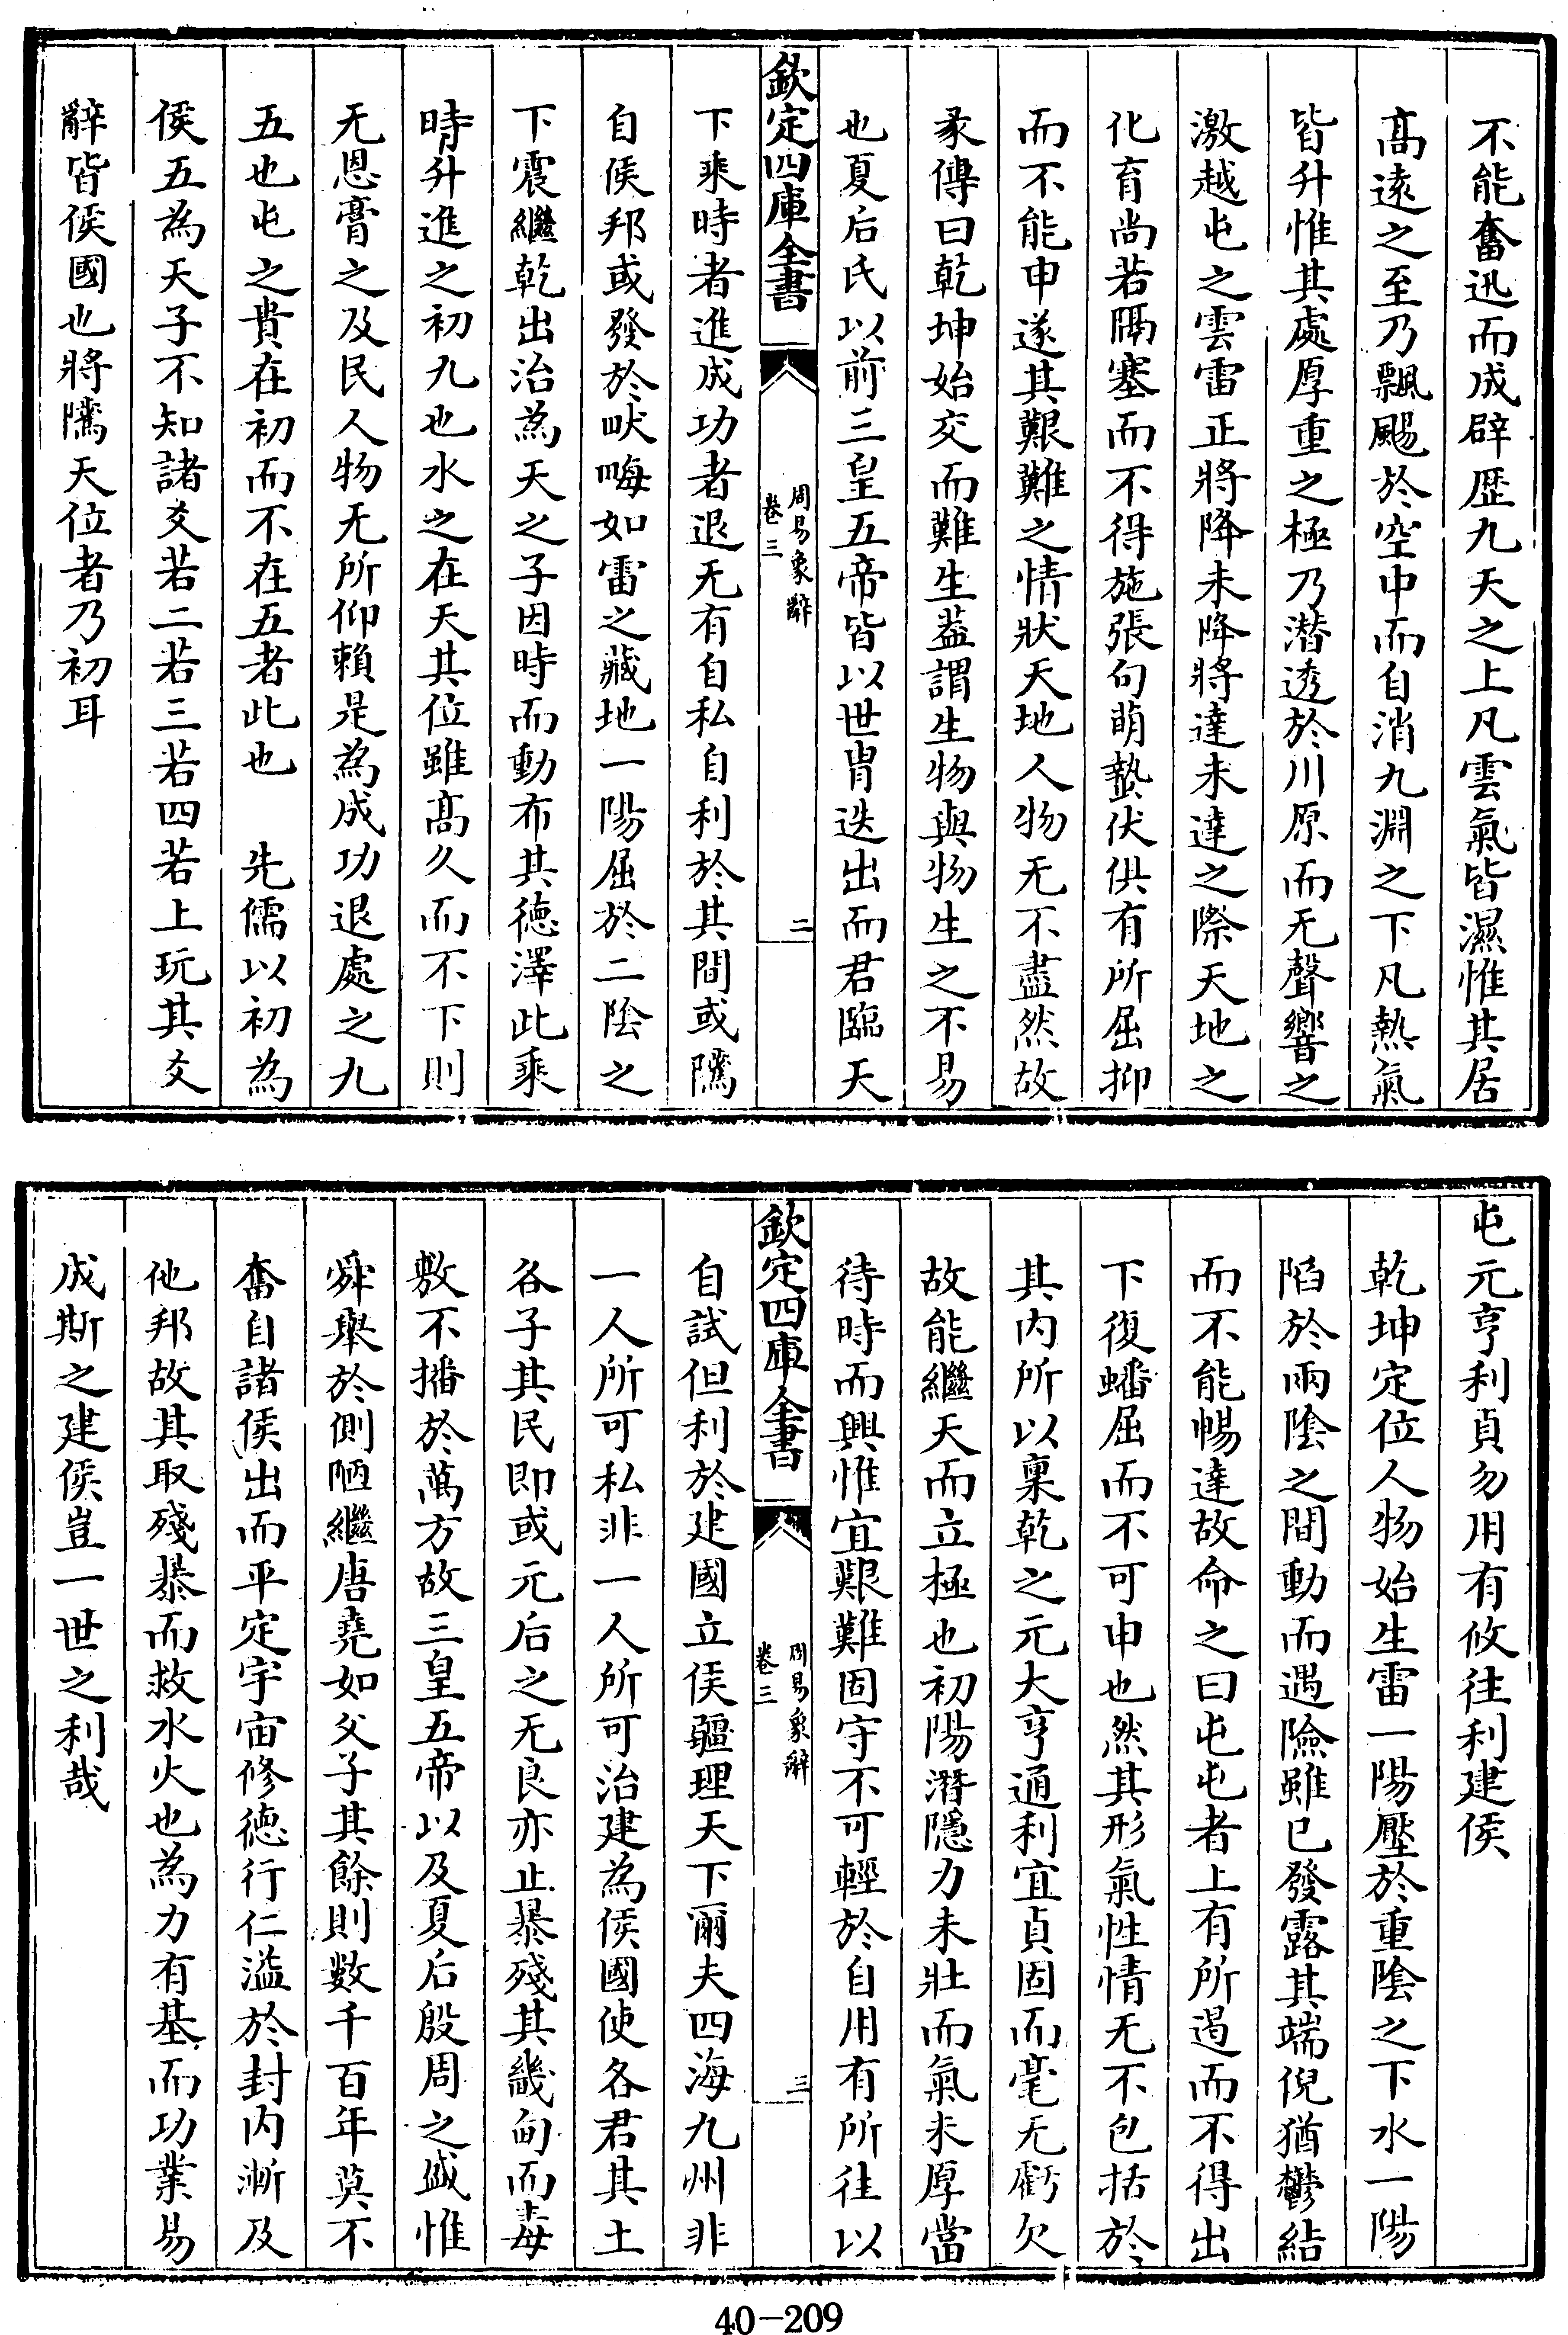 不能奮迅而成辟歴九天之上凡雲氣皆濕惟其居
髙逺之至乃飄颺於空中而自消九淵之下凡熱氣
皆升惟其處厚重之極乃潛透於川原而无聲響之
激越屯之雲雷正將降未降將達未達之際天地之
化育尚若隔塞而不得施張句萌蟄伏俱有所屈抑
而不能申遂其艱難之情狀天地人物无不盡然故
彖傳曰乾坤始交而難生葢謂生物與物生之不易
也夏后氏以前三皇五帝皆以世胄迭出而君臨天
欽定四庫全書
周易象辭
卷三
二
下乘時者進成功者退无有自私自利於其間或隲
自侯邦或發於畎畮如雷之藏地一陽屈於二陰之
下震繼乾出治為天之子因時而動布其徳澤此乘
時升進之初九也水之在天其位雖髙久而不下則
无恩膏之及民人物无所仰賴是為成功退處之九
五也屯之貴在初而不在五者此也　先儒以初為
侯五為天子不知諸爻若二若三若四若上玩其爻
辭皆侯國也將隲天位者乃初耳
屯元亨利貞勿用有攸往利建侯
乾坤定位人物始生雷一陽壓於重陰之下水一陽
陷於兩陰之間動而遇險雖已發露其端倪猶鬱結
而不能暢達故命之曰屯屯者上有所遏而不得出
下復蟠屈而不可申也然其形氣性情无不包括於
其内所以稟乾之元大亨通利宜貞固而毫无虧欠
故能繼天而立極也初陽潛隱力未壯而氣未厚當
待時而興惟宜艱難固守不可輕於自用有所往以
欽定四庫全書
周易象辭
卷三
三
自試但利於建國立侯疆理天下爾夫四海九州非
一人所可私非一人所可治建為侯國使各君其土
各子其民即或元后之无良亦止暴殘其畿甸而毒
敷不播於萬方故三皇五帝以及夏后殷周之盛惟
舜舉於側陋繼唐堯如父子其餘則數千百年莫不
奮自諸侯出而平定宇宙修徳行仁溢於封内漸及
他邦故其取殘暴而救水火也為力有基而功業易
成斯之建侯豈一世之利哉
40-209